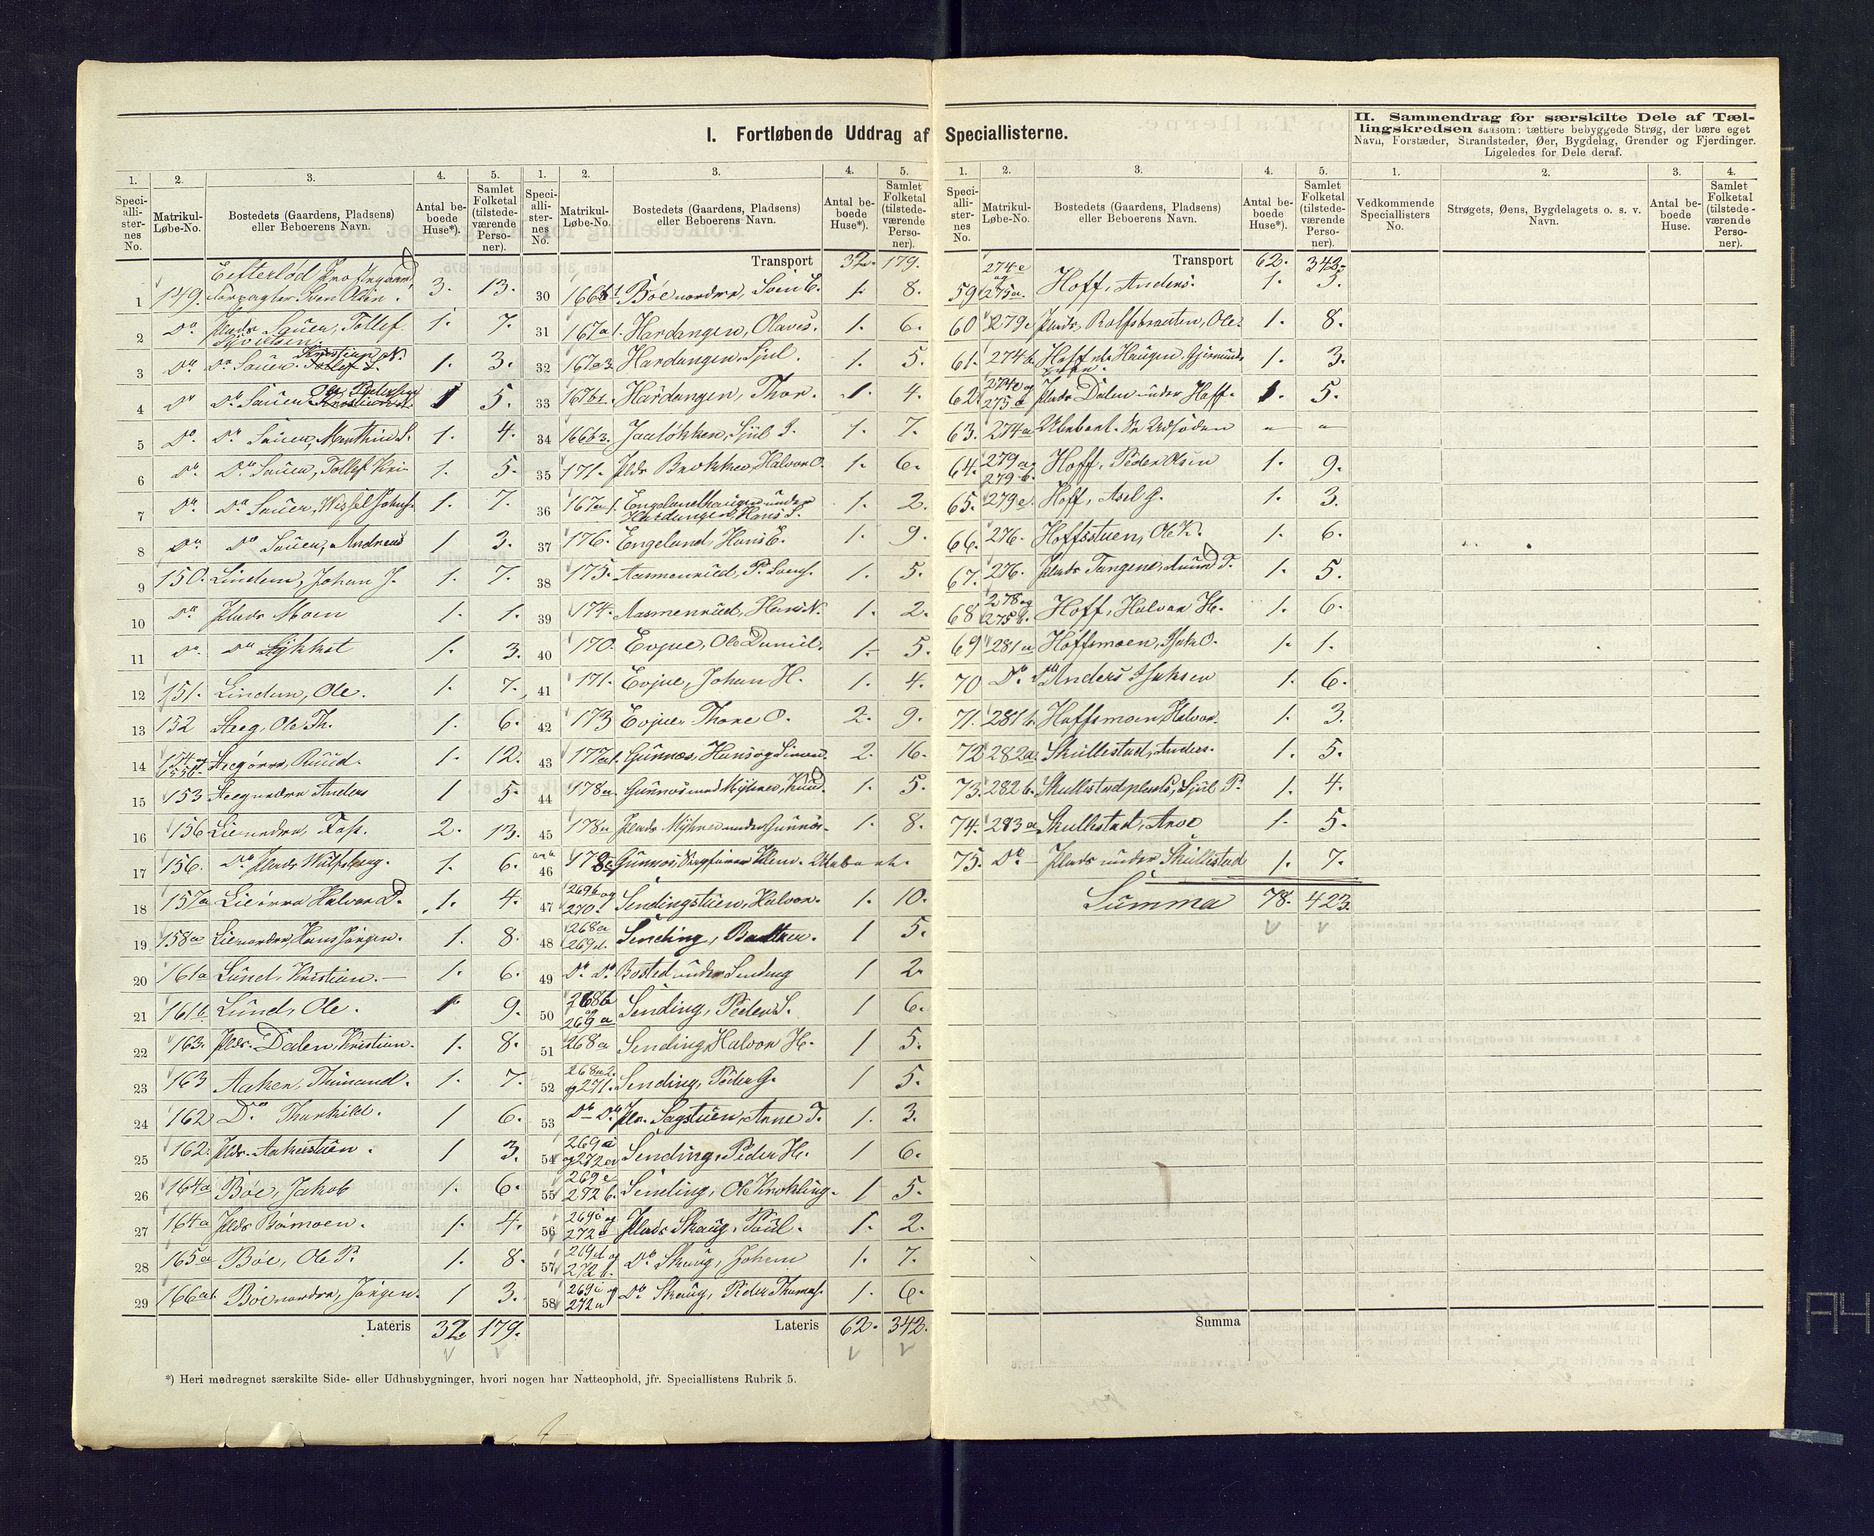 I. Fortløbende Uddrag af Speciallisterne.
1. 2. 3. 4. 5.
Speciallisternes No. Matrikul-Løbe-No. Bostedets (Gaardens, Pladsens) eller Beboerens Navn. Antal beboede Huse*). Samlet Folketal (tilstedeværende Personer).
1 149. Eefterlød Forpagter Sven Olsen. 3. 13.
2 Do Plads Sauen, Tollef 1. 7.
3 Do Do Sauen Kristian N. 1. 3.
4 Do Do Sauen Ole Pedersen 1 5.
5 Do Do Sauen, Marthin S. 1. 4.
6 Do Do Sauen, Tollef Kri 1. 5.
7 Do Do Sauen, 1. 7.
8 Do Do Sauen, Andreas 1 3.
9 150. Linden, Johan J. 1. 7.
10 Do Plads Moen 1. 1.
11 Do Do 1. 3.
12 151. Linden, Ole. 1. 7.
13 152 Aeg, Ole Th. 1. 6.
14 154 og 155b. Aegøvre, Ruud. 1. 12.
15 153 Aegnedre Anders 1 5.
16 156 Lienedre, 2. 13.
17 156. Do Plads Wulfsberg. 1. 6.
18 157a Lieøvre Halvor D. 1. 4.
19 158a Lienordre, Hans Jörgen. 1. 8.
20 161a Lund, Kristian. — 1. 6.
21 161b Lund, Ole. 1 9.
22 163. Plds. Dalen, Kristian. 1. 8.
23 163 Aaken, 1. 7.
24 162 Do Thorkild. 1 6.
25 162. Plds. Aakerstuen. 1 3.
26 164a Böe, Jakob 1. 6.
27 164a Plds Bömoen. 1. 4.
28 165a Böe, Ole P. 1. 8.
29 166a1. Böe nordre, Jörgen. 1 3.
Lateris 32. 179.
1. 2. 3. 4. 5.
Speciallisternes No. Matrikul-Løbe-No. Bostedets (Gaardens, Pladsens) eller Beboerens Navn. Antal beboede Huse*). Samlet Folketal (tilstedeværende Personer).
Transport 32. 179.
30 166b1 Böe nordre, 1. 8.
31 167a1. Hardangen, Olaves. 1. 6.
32 167a3. Hardangen, Sjul. 1. 5.
33 167b1. Hardangen, Thor. 1. 4.
34 166b3. Jaaløkken, Sjul S. 1. 7.
35 171. Plds Brokken, Halvor O. 1. 6.
36 167a1. Engelandhaugen under Hardangen, Hans S. 1. 2.
37 176. Engeland, Hans E. 1. 9.
38 175. Aasmenrud, P. 1. 5.
39 174. Aasmenrud, Hans N. 1. 2.
40 170. Evjue, Ole Daniel. 1. 5.
41 171. Evjue, Johan H. 1. 4.
42 173 Evjue, Thore O. 2. 9.
43 177a1. Gunnæs, Hans og Simen 2. 16.
44 178a. Gunnæs med Myhren, Knud 1. 5.
45 178a Plads Myhren under Gunnæs. 1. 8.
46 Gunnæs, Ubeboet.
47 269b og 270. Sendingstuen, Halvor. 1. 10.
48 268a 269d. Sending, 1 5.
49 Do Do Bosted under Sending 1 2.
50 268b og 269a Sending, Peder S. 1 6.
51 268a Sending, Halvor H. 1 5.
52 268a2. og 271. Sending, Peder G. 1 5.
53 Do Do Pls. Sagstuen, Arne T. 1. 3.
54 269a og 272a Sending, Peder H. 1 6.
55 269c 272b. Sending, Ole Krokling. 1 5.
56 269i og 272a Plads Skaug, Poul. 1. 2.
57 269d og 272b. Do Skaug, Johan 1. 7.
58 269i og 272a Do Skaug, Peder Thomas. 1. 6.
Lateris 62. 342.
*) Heri medregnet særskilte Side- eller Udhusbygninger, hvori nogen har Natteophold, jfr. Speciallistens Rubrik 5.
1. 2. 3. 4. 5.
Speciallisternes No. Matrikul-Løbe-No. Bostedets (Gaardens, Pladsens) eller Beboerens Navn. Antal beboede Huse*). Samlet Folketal (tilstedeværende Personer).
Transport 62. 342.
59 274c og 275a. Hoff, Anders. 1. 3.
60 279c Plads Rolfsbraaten, Ole. 1. 8.
61. 274b. Hoff Haugen, Gjermund 1. 3.
62. 274c og 275a Plads Dalen under Hoff. 1. 5.
63. 274a Ubeboet. - -
64. 279a og 279b. Hoff, Peder Olsen 1. 9.
65. 279c. Hoff, Axel G. 1. 3.
66. 276. Hoffsstuen, Ole K. 1. 6.
67. 276. Plads Tangene, Amund T. 1. 5.
68 278 og 275b. Hoff, Halvor H. 1. 6.
69 281a Hoffsmoen, Isak O. 1. 1.
70 Do. Do Anders Isaksen 1. 6.
71. 281b. Hoffsmoen, Halvor. 1. 3.
72 282a. Skullestad, Anders. 1. 5.
73. 282b. Skullestadplads, Sjul P. 1. 4.
74. 283a Skullestad, Arve 1. 5.
75. Do Plads under Skullestad 1. 7.
Summa 78. 423.
Summa
II. Sammendrag for særskilte Dele af Tællingskredsen saasom: tættere bebyggede Strøg, der bære eget Navn, Forstæder, Strandsteder, Øer, Bygdelag, Grender og Fjerdinger. Ligeledes for Dele deraf.
1. 2. 3. 4.
Vedkommende Speciallisters No. Strøgets, Øens, Bygdelagets o. s. v. Navn. Antal beboede Huse. Samlet Folketal (tilstedeværende Personer).